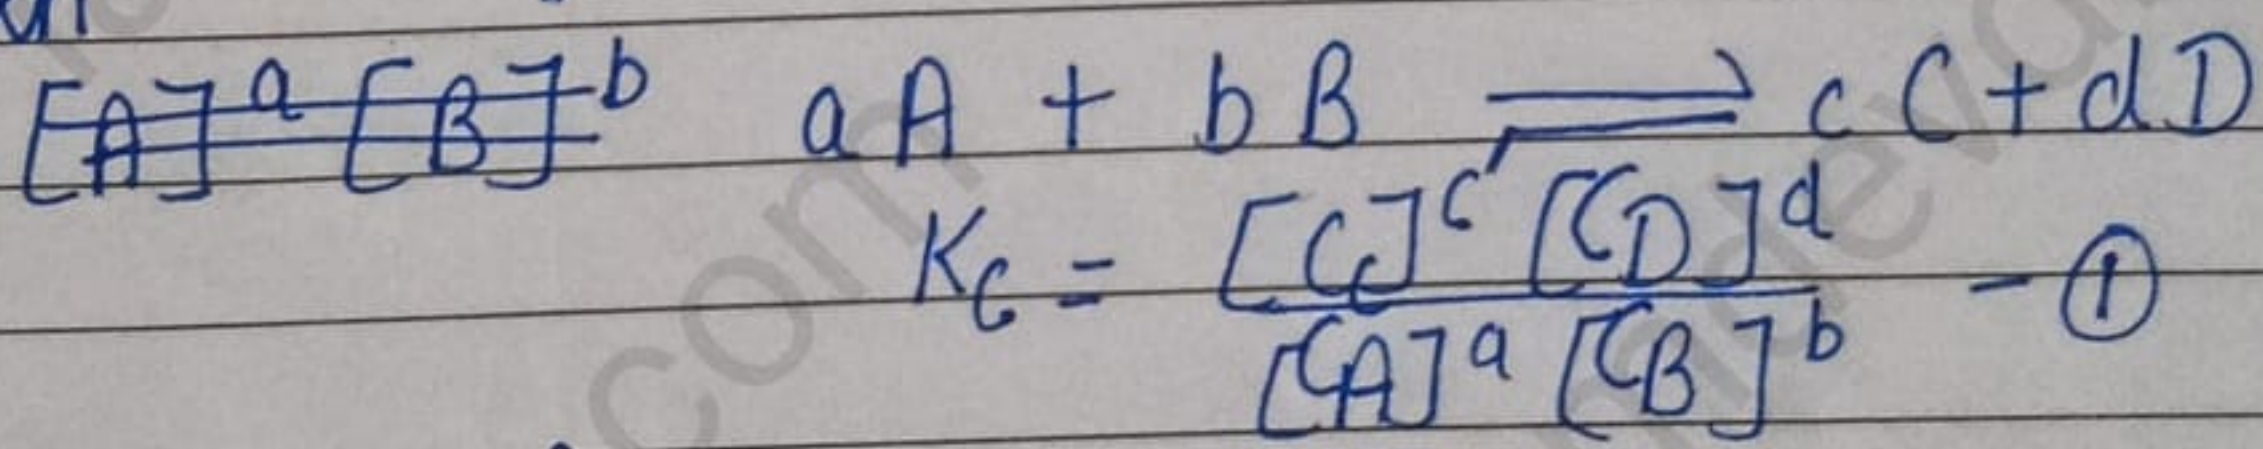 [A]ᵃ [B]ᵇ aA + bB ⇌ cC + dD
K_C = [C_C]ᶜ [C_D]ᵈ / [C_A]ᵃ [C_B]ᵇ - ①